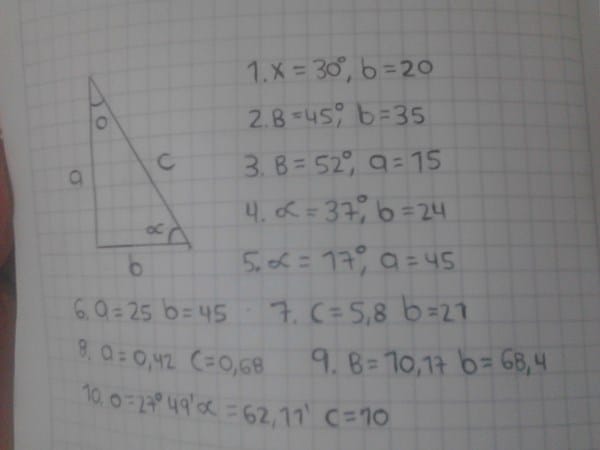 1. x = 30°, b = 20
2. B = 45°, b = 35
3. B = 52°, a = 15
4. α = 37°, b = 24
5. α = 17°, a = 45
o
a
c
α
b
6. a = 25 b = 45 7. C = 5,8 b = 21
8. a = 0,42 C = 0,68 9. B = 10,17 b = 68,4
10. o = 27° 49' α = 62,11' C = 10